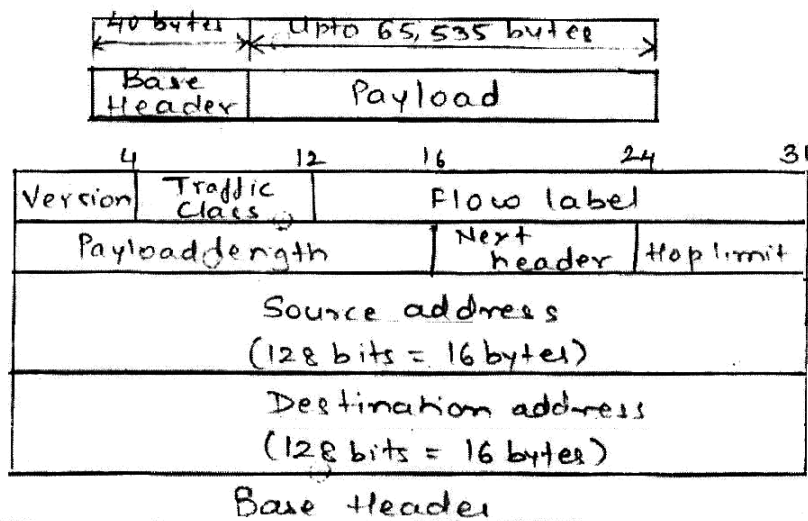 40 bytes Upto 65,535 bytes
Base Header Payload
4 12 16 24 31
Version Traffic Class Flow label
Payload length Next header Hop limit
Source address
(128 bits = 16 bytes)
Destination address
(128 bits = 16 bytes)
Base Header